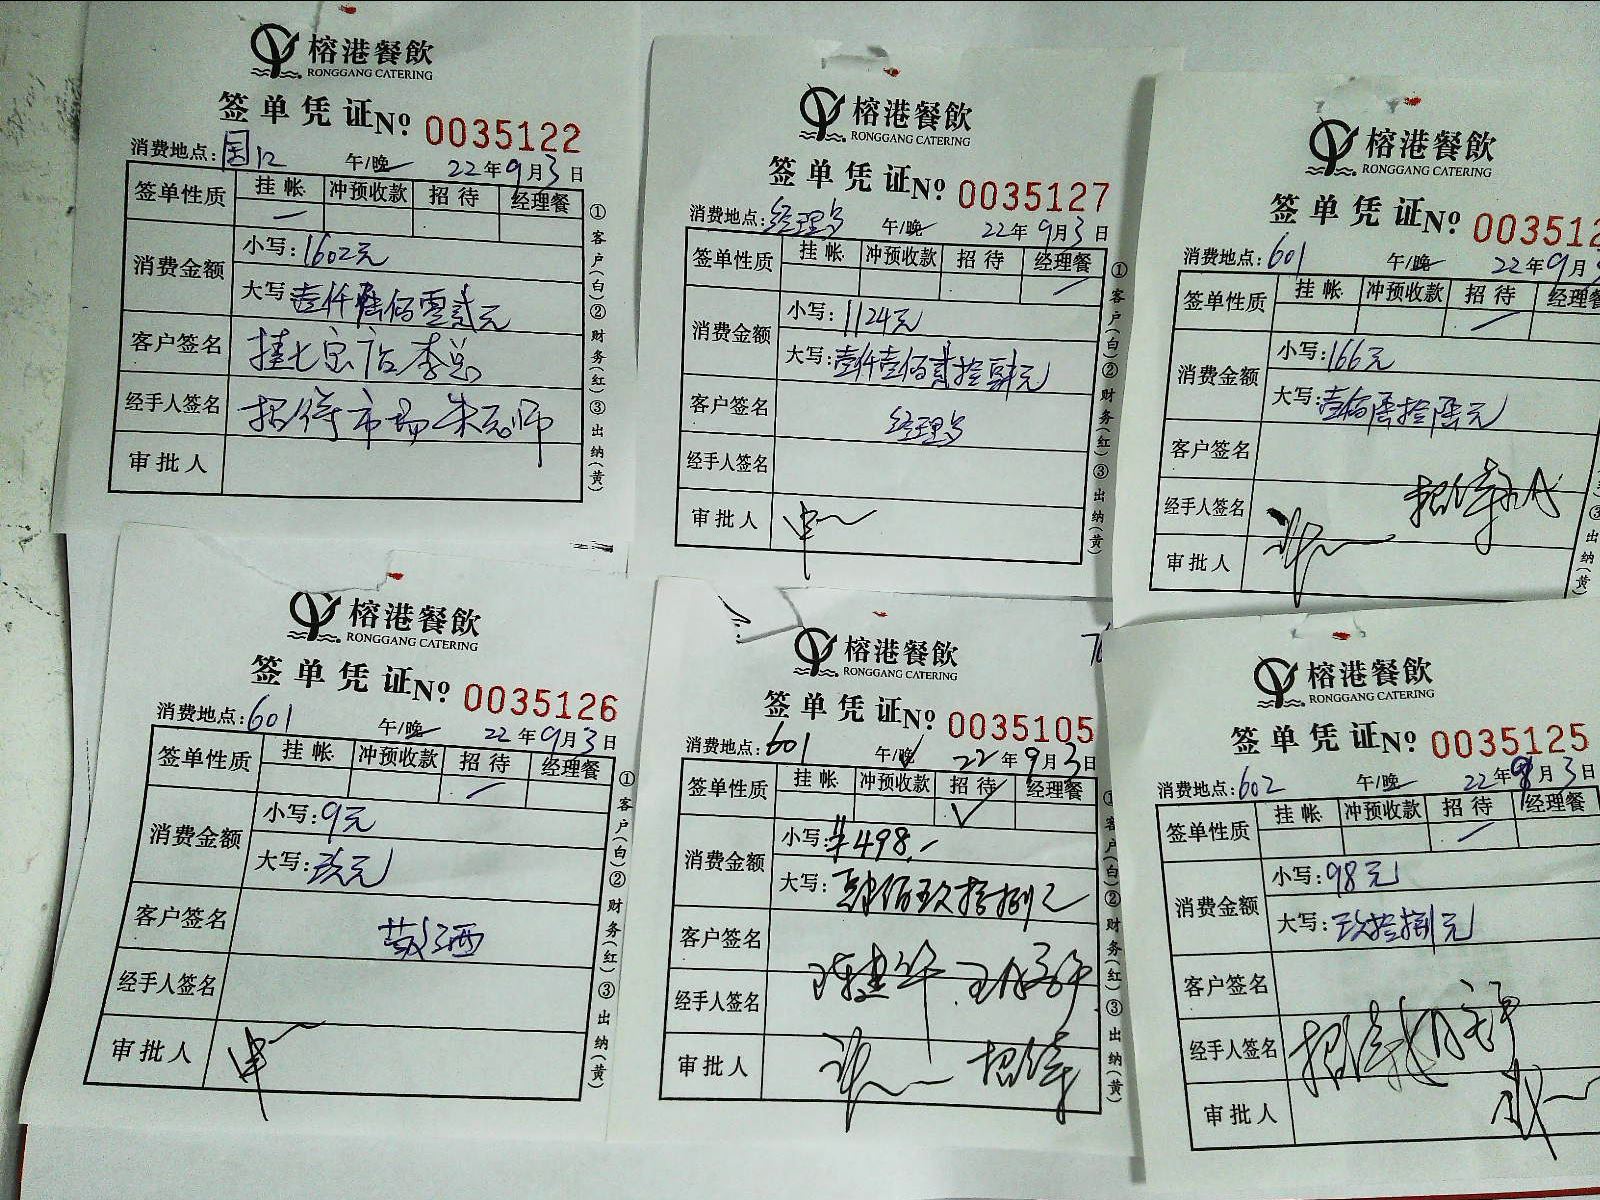 榕港餐飲
RONGGANG CATERING
签单凭证 No 0035122
消费地点: 午/晚 22年9月3日
签单性质 挂帐 冲预收款 招待 经理餐
消费金额 小写:1602元
大写 壹仟陆佰零贰元
客户签名 李总
经手人签名 招待市场朱
审批人
①客户(白)②财务(红)③出纳(黄)
榕港餐飲
RONGGANG CATERING
签单凭证 No 0035127
消费地点:经理 午/晚 22年9月3日
签单性质 挂帐 冲预收款 招待 经理餐
消费金额 小写:1124元
大写:壹仟壹佰贰拾肆元
客户签名 经理
经手人签名
审批人
①客户(白)②财务(红)③出纳(黄)
榕港餐飲
RONGGANG CATERING
签单凭证 No 003512
消费地点:601 午/晚 22年9月
签单性质 挂帐 冲预收款 招待 经理
消费金额 小写:166元
大写:壹佰陆拾陆元
客户签名
经手人签名 招待
审批人
③出纳(黄)
榕港餐飲
RONGGANG CATERING
签单凭证 No 0035126
消费地点:601 午/晚 22年9月3日
签单性质 挂帐 冲预收款 招待 经理餐
消费金额 小写:9元
大写:玖元
客户签名
经手人签名
审批人
①客户(白)②财务(红)③出纳(黄)
榕港餐飲
RONGGANG CATERING
签单凭证 No 0035105
消费地点:601 午/晚 22年9月3日
签单性质 挂帐 冲预收款 招待 经理餐
消费金额 小写:¥498.-
大写:肆佰玖拾捌元
客户签名
经手人签名
审批人 招待
客户(白)②财务(红)③出纳(黄)
榕港餐飲
RONGGANG CATERING
签单凭证 No 0035125
消费地点:602 午/晚 22年9月3日
签单性质 挂帐 冲预收款 招待 经理餐
消费金额 小写:98元
大写:玖拾捌元
客户签名
经手人签名 招待
审批人